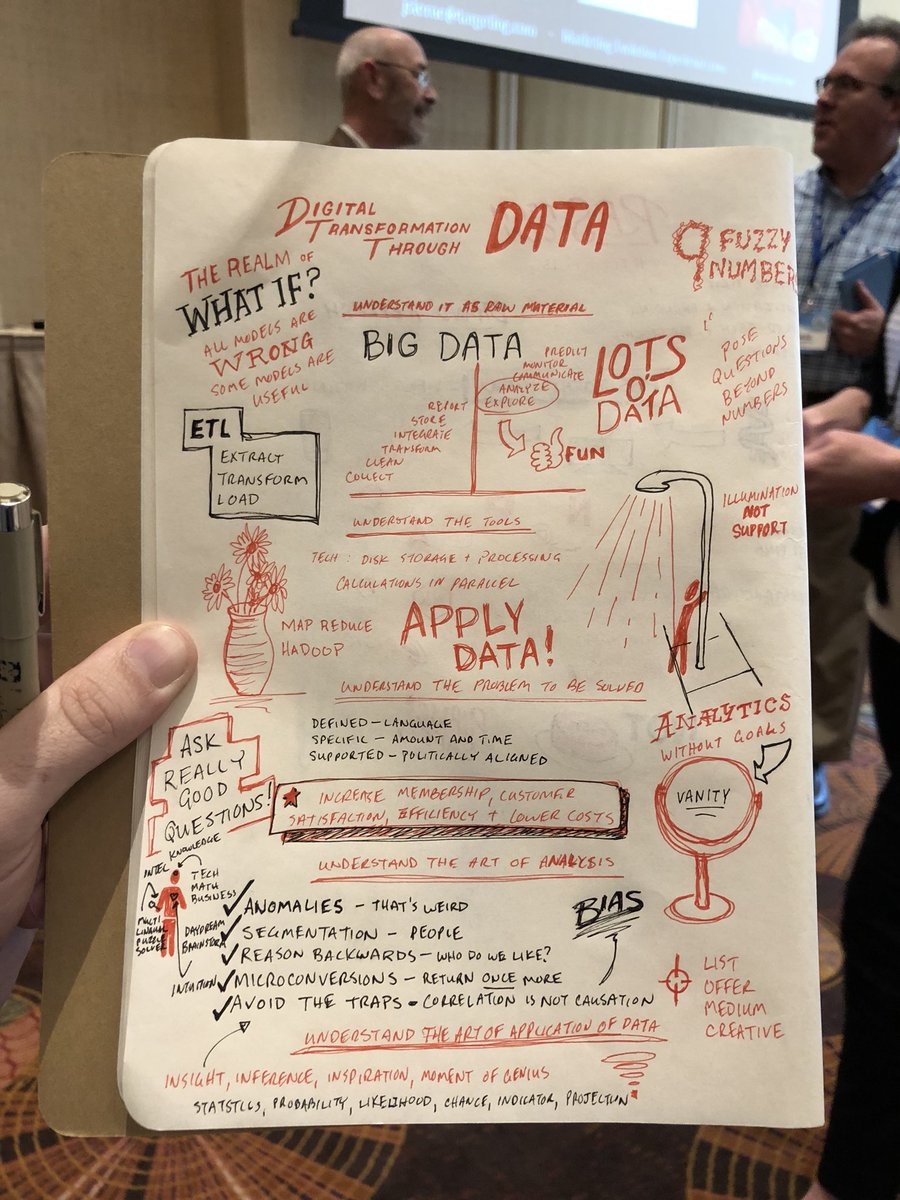 DIGITAL
TRANSFORMATION
THROUGH
DATA
9 FUZZY
NUMBER
THE REALM OF
WHAT IF?
ALL MODELS ARE
WRONG
SOME MODELS ARE
USEFUL
UNDERSTAND IT AS RAW MATERIAL
BIG DATA
PREDICT
MONITOR
COMMUNICATE
ANALYZE
EXPLORE
REPORT
STORE
INTEGRATE
TRANSFORM
CLEAN
COLLECT
FUN
LOTS
O'
DATA
POSE
QUESTIONS
BEYOND
NUMBERS
ETL
EXTRACT
TRANSFORM
LOAD
UNDERSTAND THE TOOLS
ILLUMINATION
NOT
SUPPORT
TECH: DISK STORAGE + PROCESSING
CALCULATIONS IN PARALLEL
MAP REDUCE
HADOOP
APPLY
DATA!
UNDERSTAND THE PROBLEM TO BE SOLVED
DEFINED - LANGUAGE
SPECIFIC - AMOUNT AND TIME
SUPPORTED - POLITICALLY ALIGNED
ANALYTICS
WITHOUT GOALS
VANITY
ASK
REALLY
GOOD
QUESTIONS!
INCREASE MEMBERSHIP, CUSTOMER
SATISFACTION, EFFICIENCY + LOWER COSTS
UNDERSTAND THE ART OF ANALYSIS
KNOWLEDGE
INTEL
TECH
MATH
BUSINESS
MULTI
LINGUAL
PUZZLE
SOLVER
DAYDREAM
BRAINSTORM
INTUITION
ANOMALIES - THAT'S WEIRD
SEGMENTATION - PEOPLE
REASON BACKWARDS - WHO DO WE LIKE?
MICROCONVERSIONS - RETURN ONCE MORE
AVOID THE TRAPS - CORRELATION IS NOT CAUSATION
BIAS
LIST
OFFER
MEDIUM
CREATIVE
UNDERSTAND THE ART OF APPLICATION OF DATA
INSIGHT, INFERENCE, INSPIRATION, MOMENT OF GENIUS
STATSTICS, PROBABILITY, LIKELIHOOD, CHANCE, INDICATOR, PROJECTION